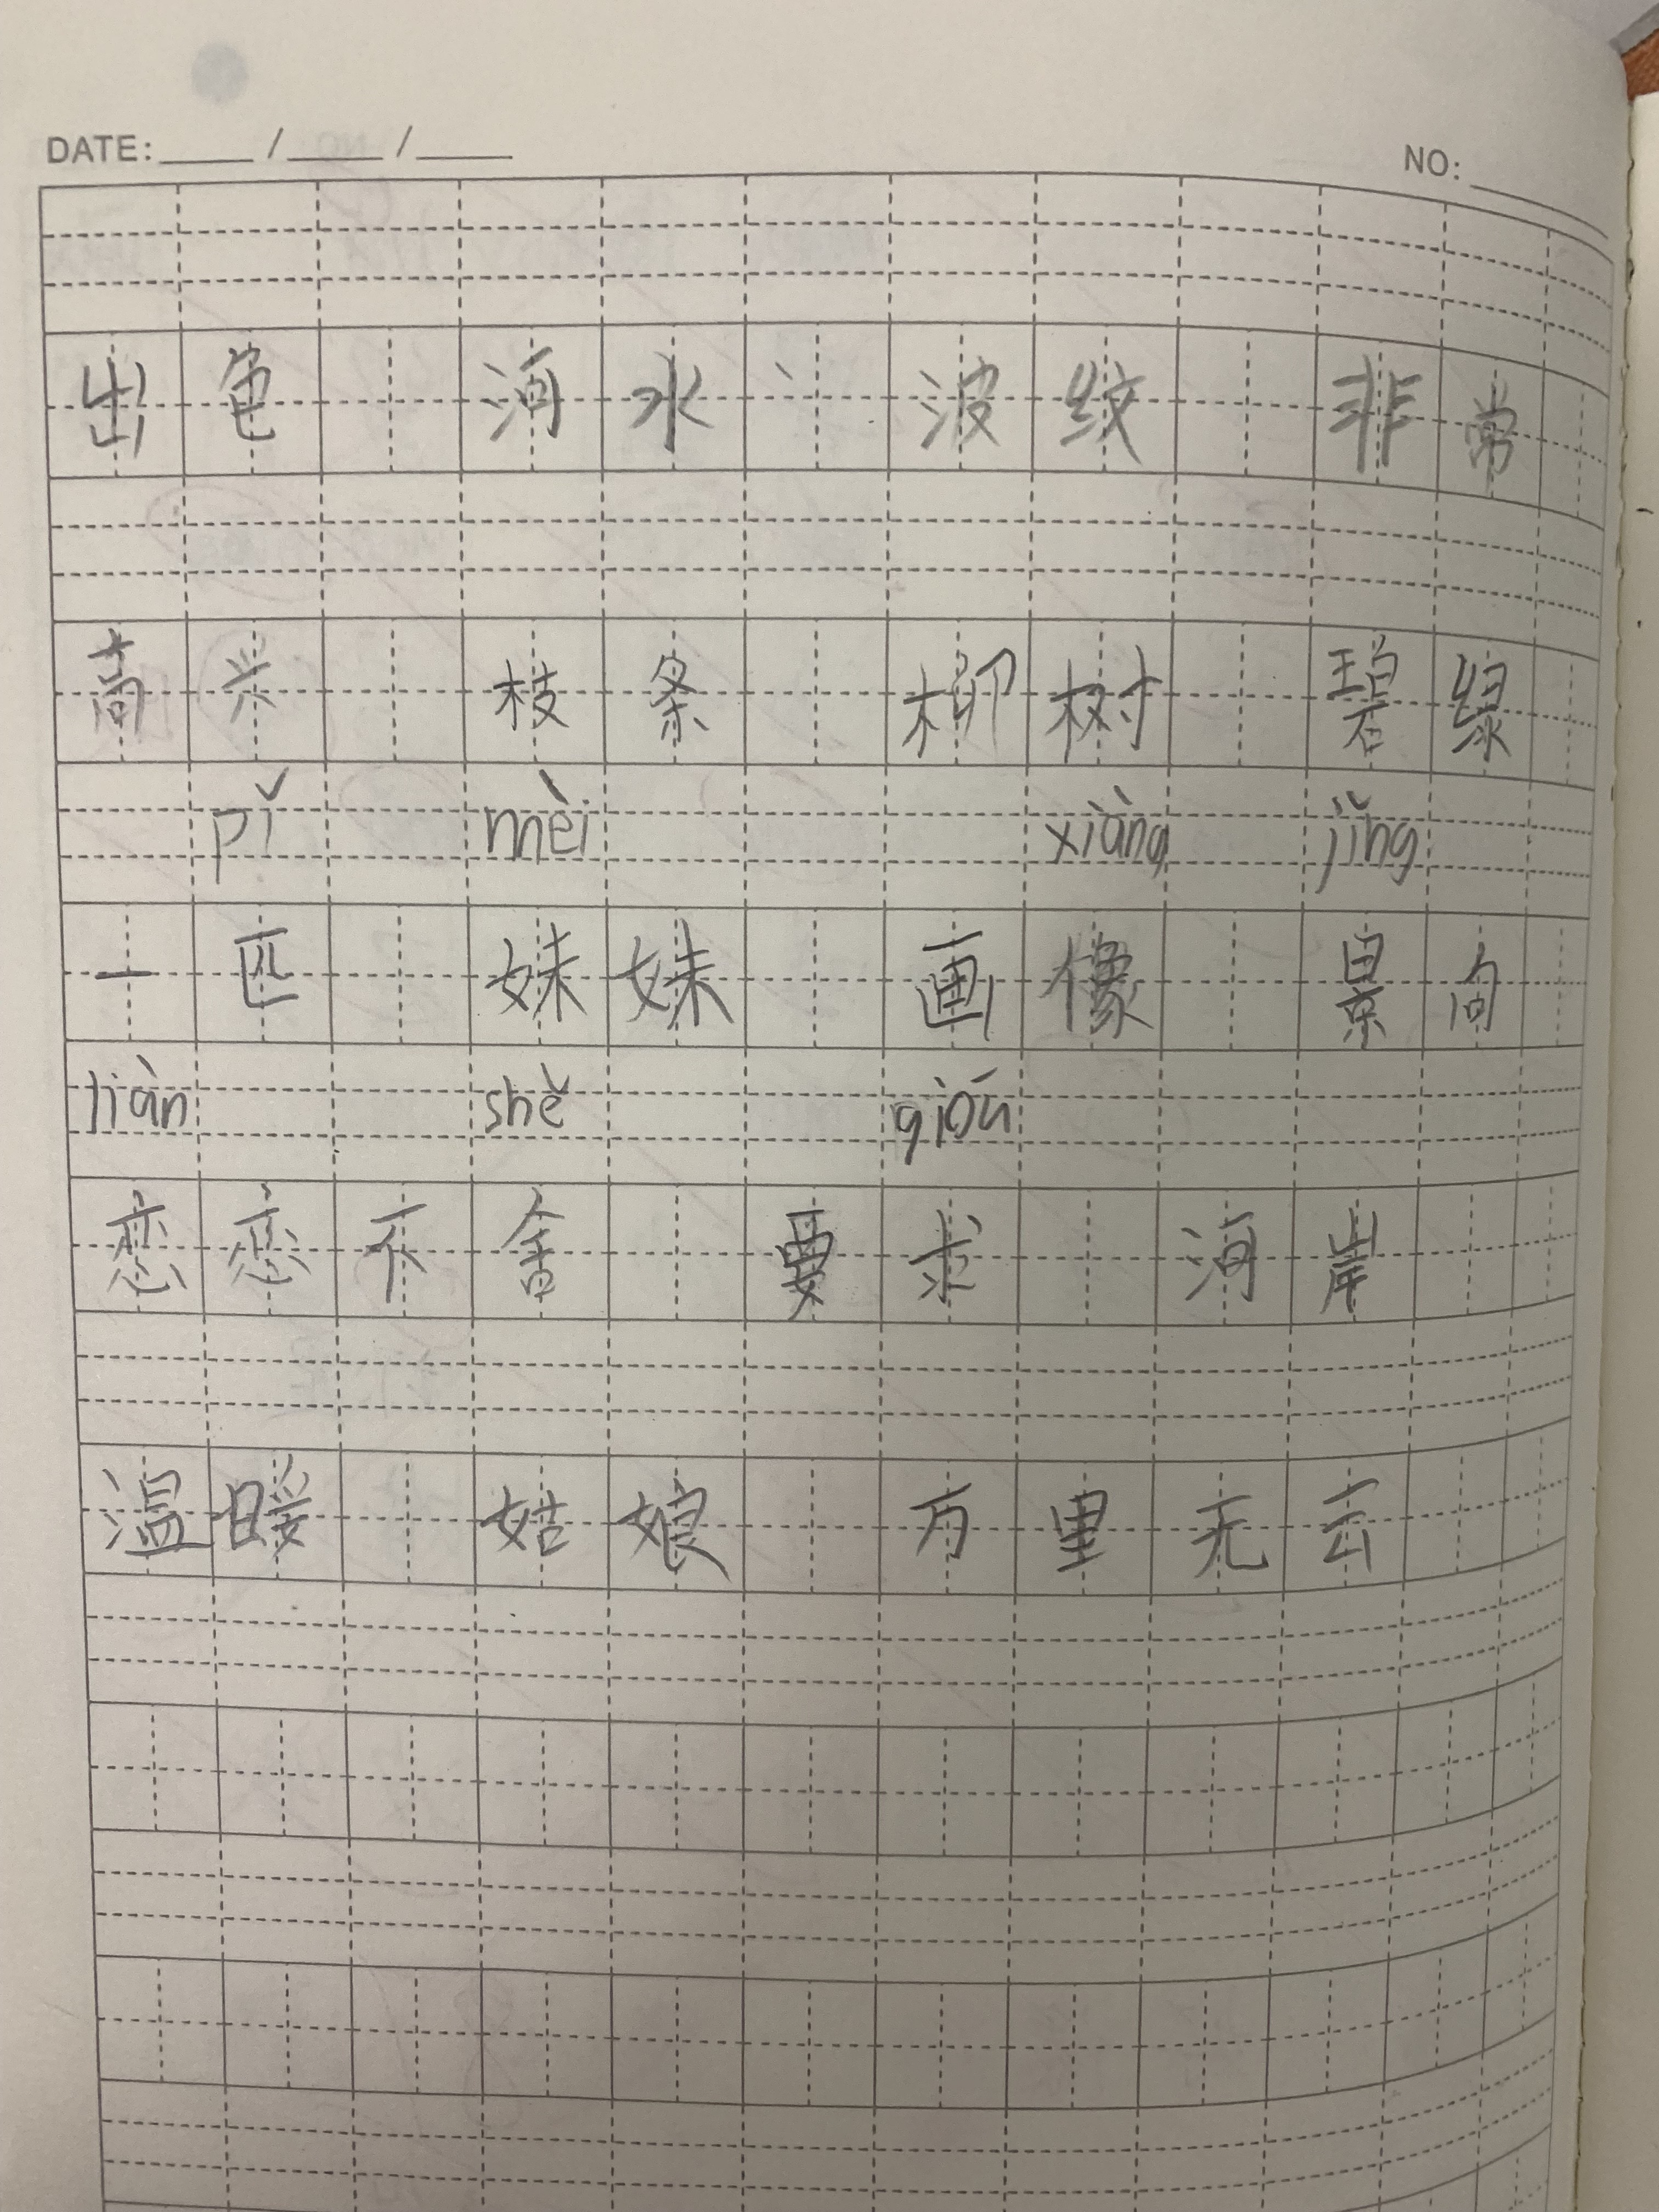 DATE: / / NO:
出色 河水 波纹 非常
高兴 枝条 柳树 碧绿
pǐ mèi xiàng jǐng
一匹 妹妹 画像 景向
liàn shě qióu
恋恋不舍 要求 河岸
温暖 姑娘 万里无云